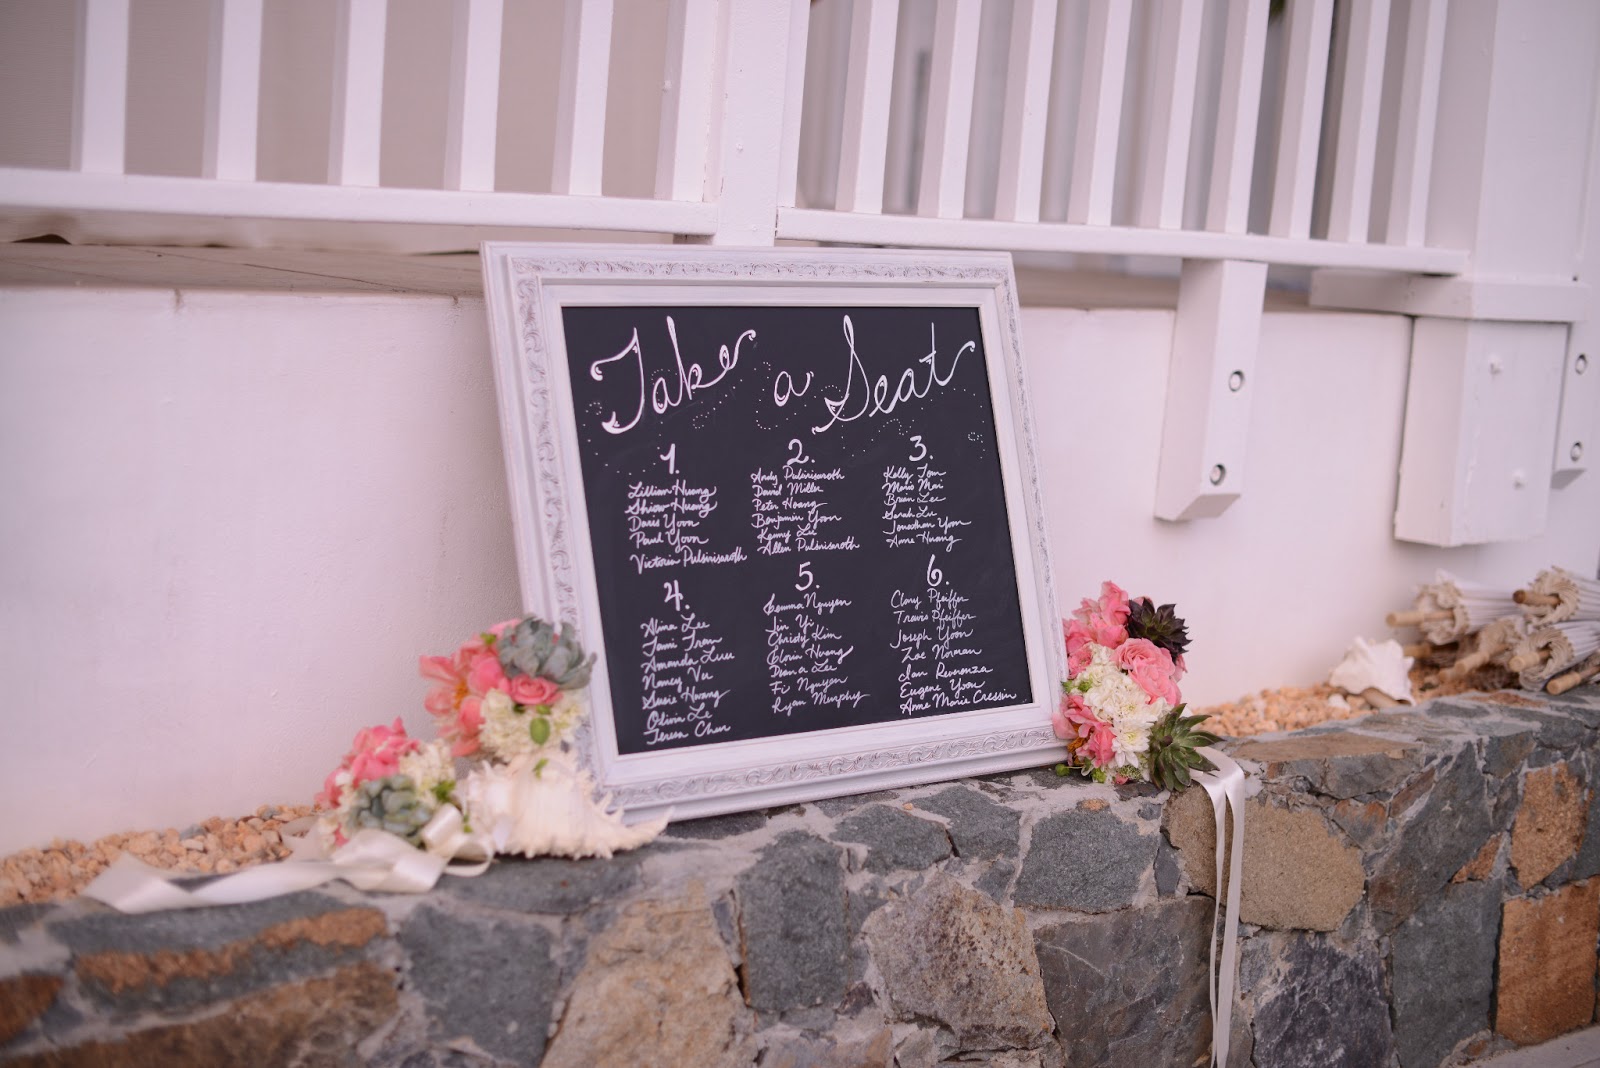 Take a Seat
1.
Lillian Huang
Shiow Huang
Doris Yoon
Paul Yoon
Victoria Pulsirisaroth
2.
Andy Pulsirisaroth
David Miller
Peter Hoang
Benjamin Yoon
Kenny Le
Allen Pulsirisaroth
3.
Kelly Tom
Mario Mai
Brian Lee
Sarah Lu
Jonathan Yoon
Anne Huang
4.
Alina Lee
Tami Tran
Amanda Luu
Nancy Vu
Susie Hwang
Olivia Le
Teresa Chun
5.
Gemma Nguyen
Jin Yi
Christy Kim
Gloria Huang
Diana Lee
Fi Nguyen
Ryan Murphy
6.
Clory Pfeiffer
Travis Pfeiffer
Joseph Yoon
Zoe Norman
Ian
Eugene Yoon
Anne Marie Cressin